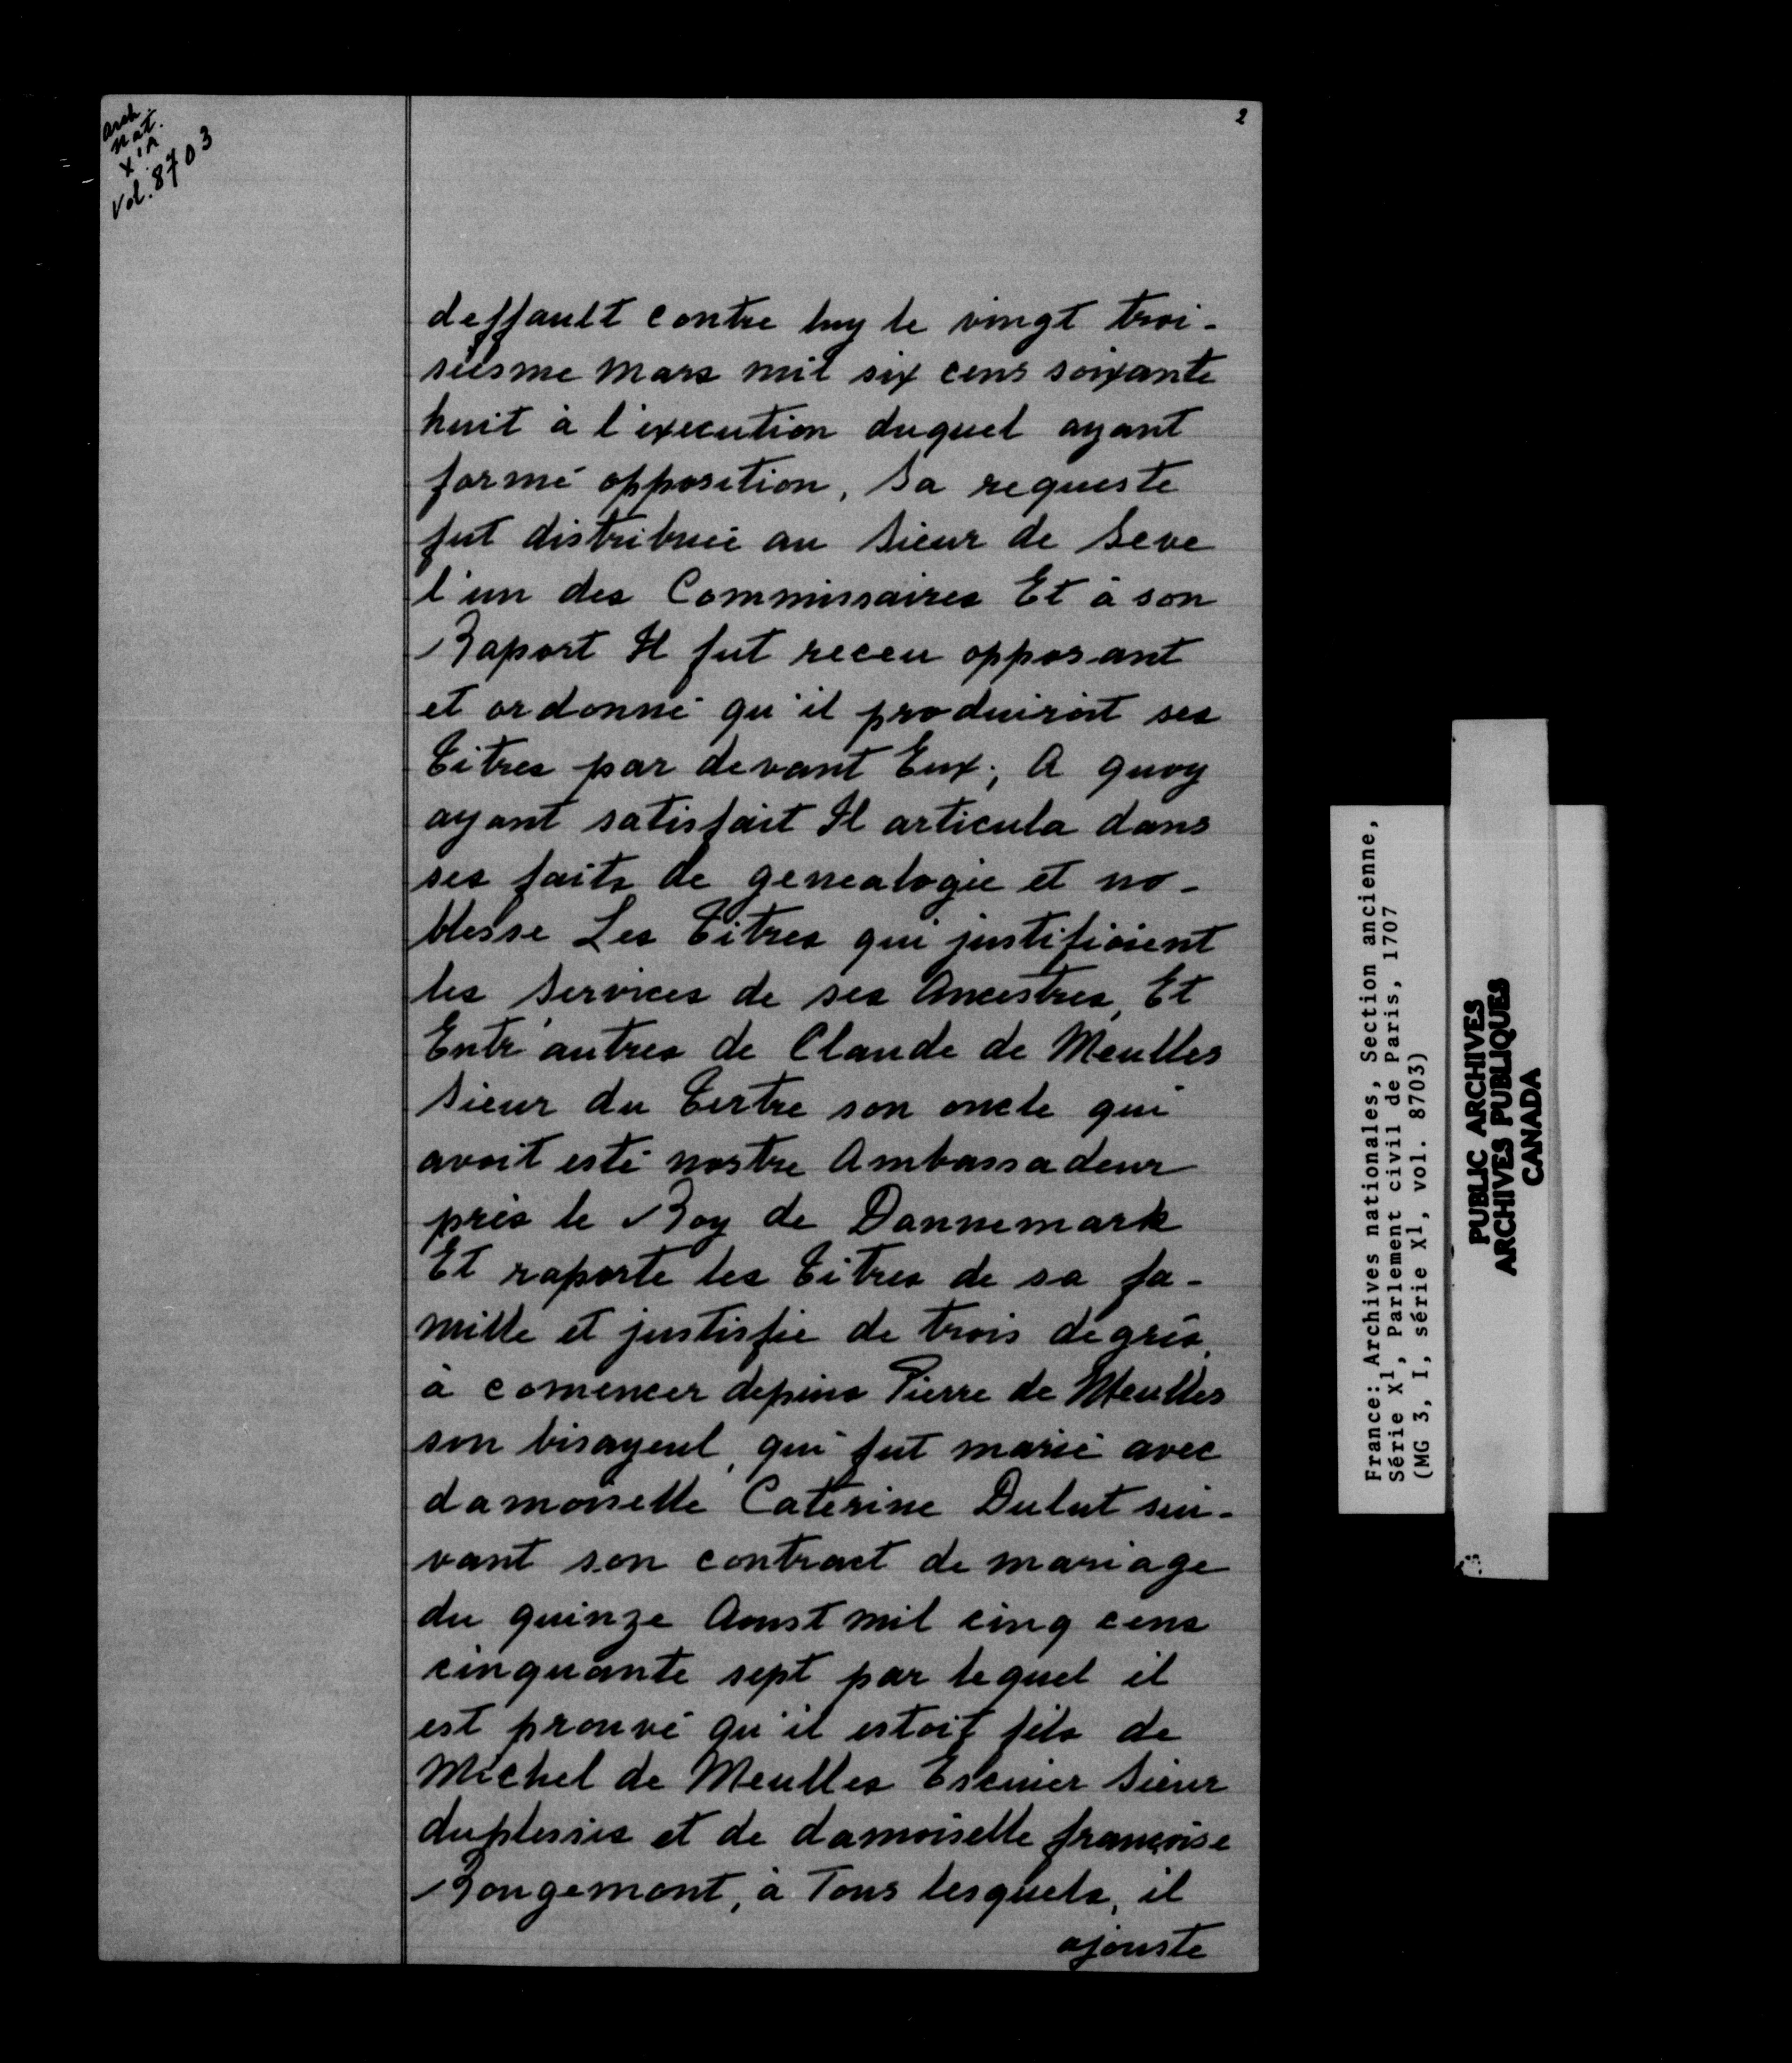 Arch.
Nat.
X1A
Vol. 8703
2
deffault contre luy le vingt troi-
siesme Mars mil six cens soixante
huit à l'execution duquel ayant
formé opposition, Sa requeste
fut distribuée au Sieur de Seve
l'un des Commissaires Et à son
Raport Il fut receu opposant
et ordonné qu'il produiroit ses
Titres par devant Eux; A quoy
ayant satisfait Il articula dans
ses faits de genealogie et no-
blesse Les Titres qui justifioient
les Services de ses Ancestres, Et
Entr'autres de Claude de Meulles
Sieur du Tertre son oncle qui
avoit esté nostre Ambassadeur
près le Roy de Dannemark
Et raporte les Titres de sa fa-
mille et justiffie de trois degrés,
à comencer depuis Pierre de Meulles
son bisayeul, qui fut marié avec
damoiselle Caterine Dulut sui-
vant son contract de mariage
du quinze Aoust mil cinq cens
cinquante sept par lequel il
est prouvé qu'il estoit fils de
Michel de Meulles Escuier Sieur
duplessis et de damoiselle françoise
Rougemont, à Tous lesquels, il
ajouste
France: Archives nationales, Section ancienne,
Série X1, Parlement civil de Paris, 1707
(MG 3, I, série X1, vol. 8703)
PUBLIC ARCHIVES
ARCHIVES PUBLIQUES
CANADA